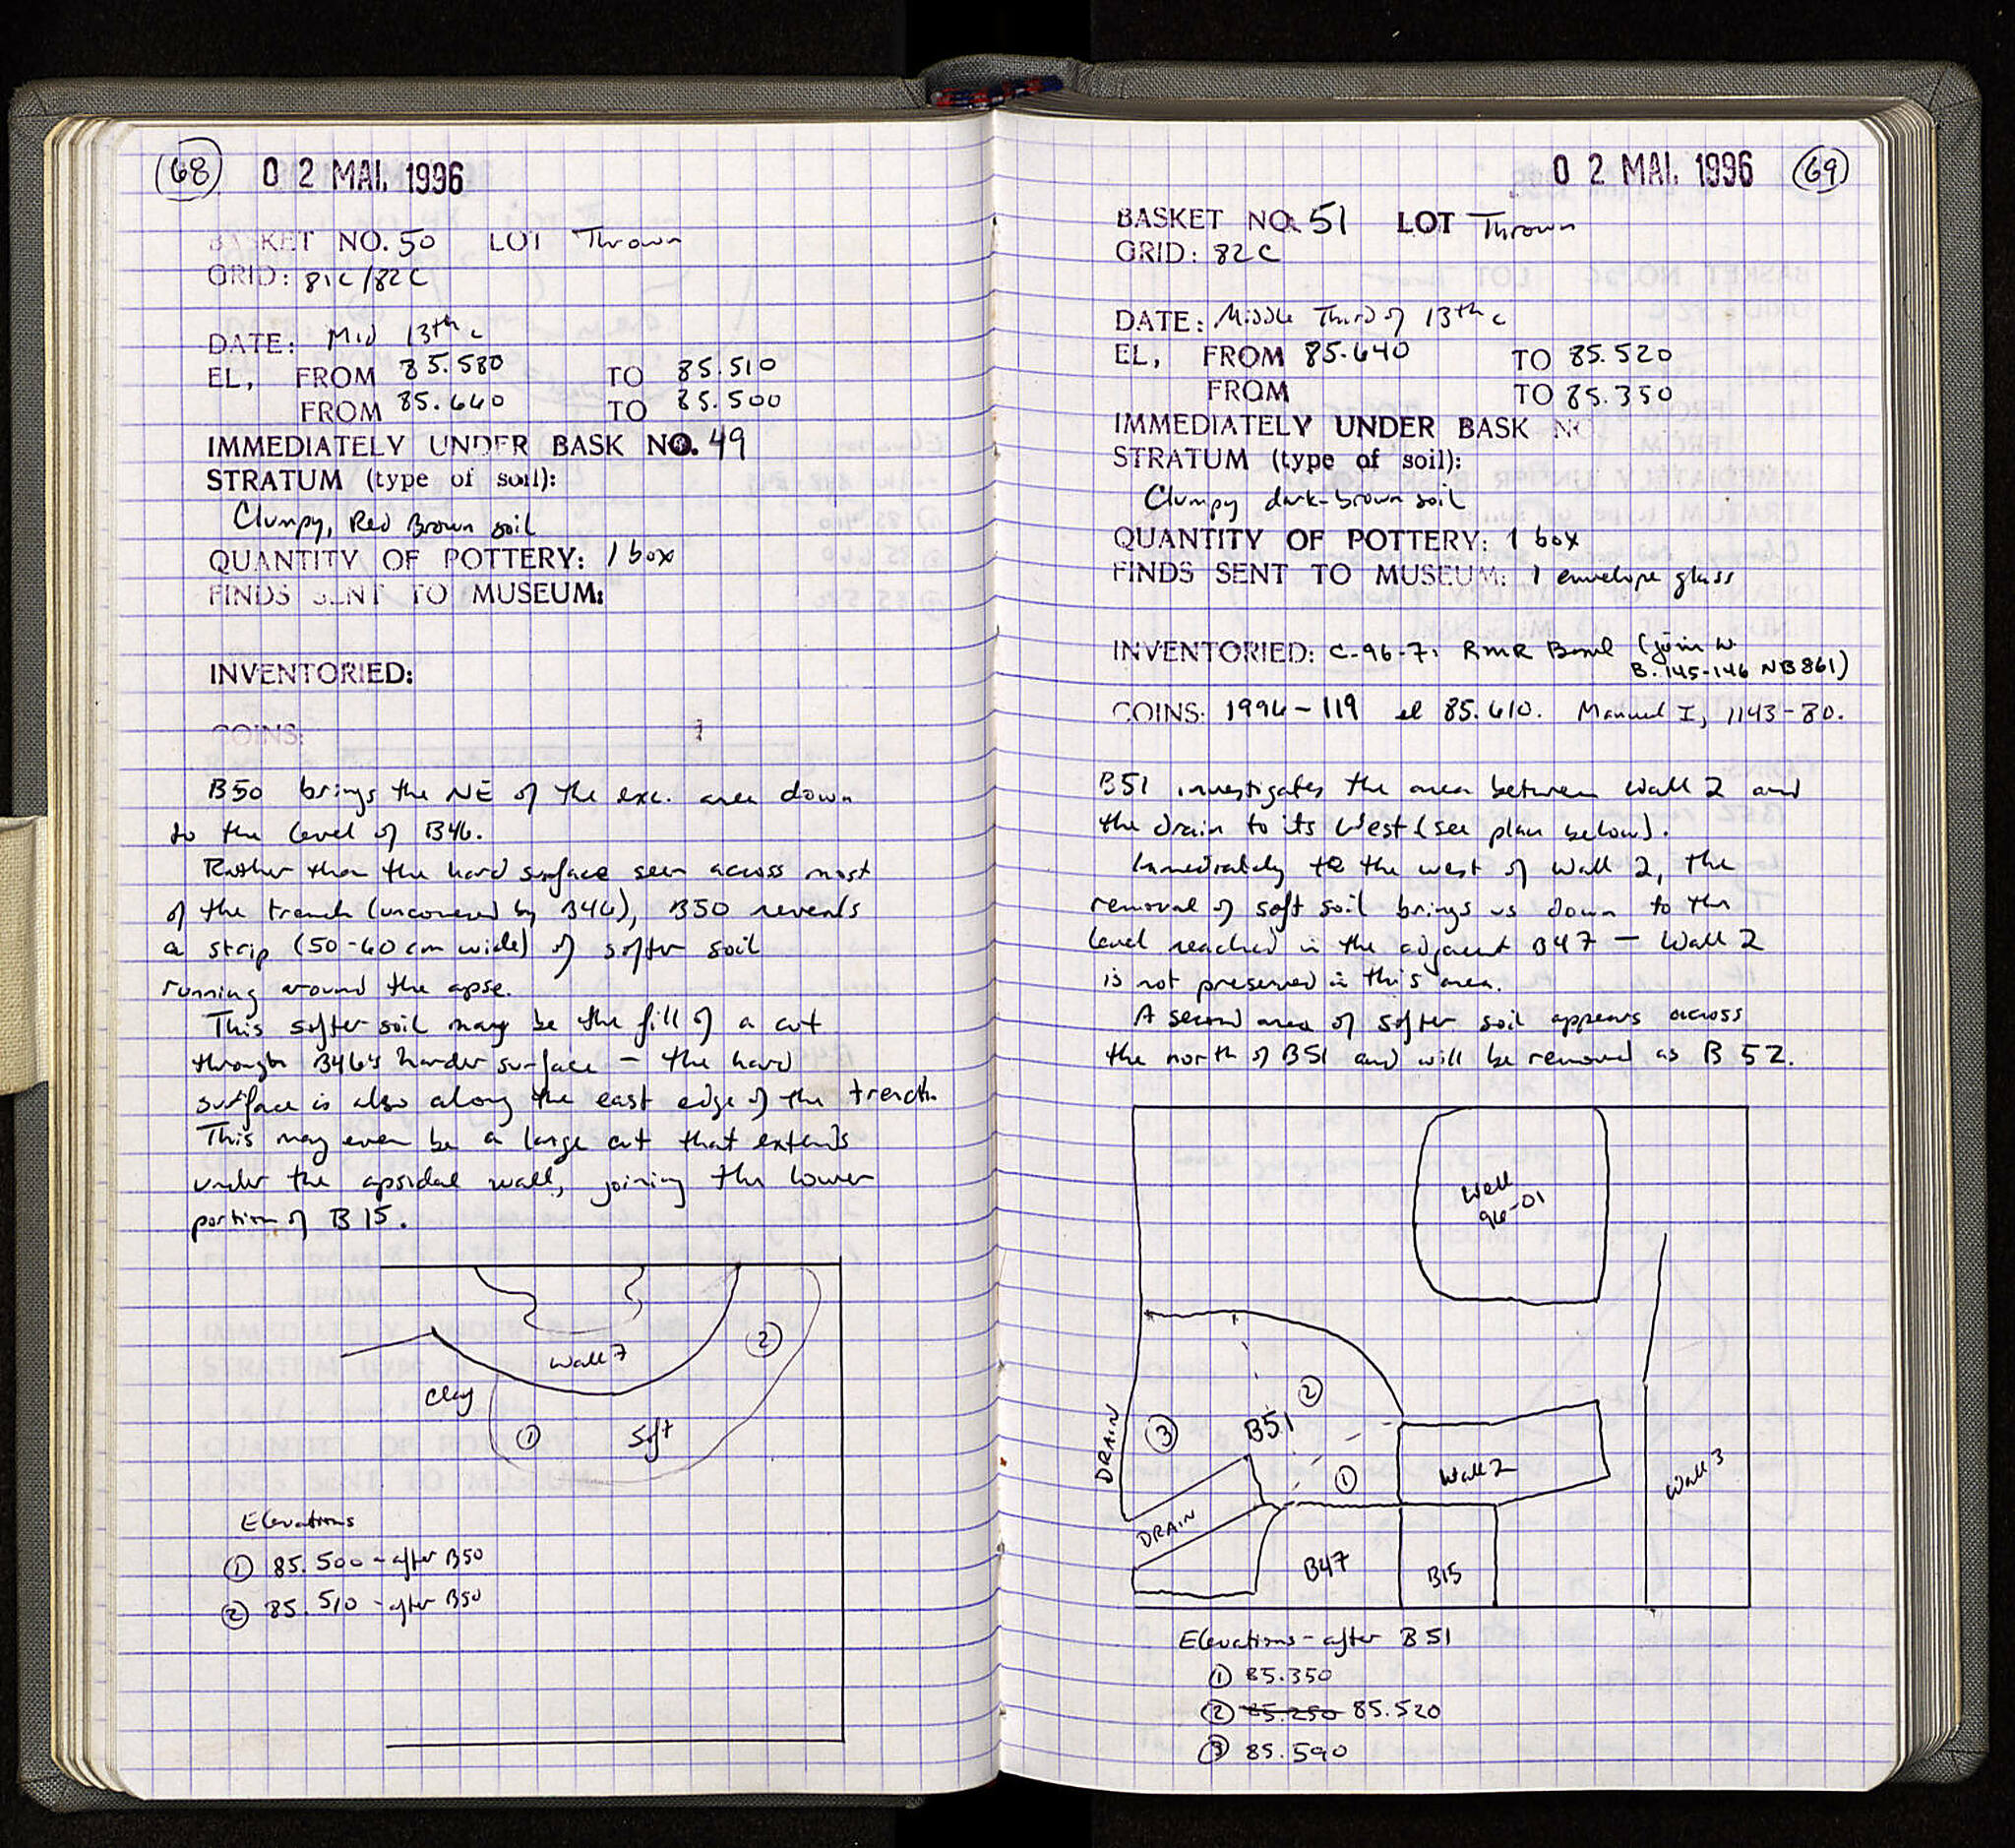 (68) 02 MAI. 1996
BASKET NO. 50 LOT Thrown
GRID: 81C/82C
DATE: Mid 13th c
EL, FROM 85.580 TO 85.510
FROM 85.640 TO 85.500
IMMEDIATELY UNDER BASK NO. 49
STRATUM (type of soil):
Clumpy, Red Brown soil
QUANTITY OF POTTERY: 1 box
FINDS SENT TO MUSEUM:
INVENTORIED:
COINS:
B50 brings the NE of the exc. area down
to the level of B46.
Rather than the hard surface seen across most
of the trench (uncovered by B46), B50 reveals
a strip (50-60 cm wide) of softer soil
running around the apse.
This softer soil may be the fill of a cut
through B46's harder surface - the hard
surface is also along the east edge of the trench.
This may even be a large cut that extends
under the apsidal wall, joining the lower
portion of B15.
Wall 7
②
Clay
① Soft
Elevations
① 85.500 - after B50
② 85.510 - after B50
02 MAI. 1996 (69)
BASKET NO. 51 LOT Thrown
GRID: 82C
DATE: Middle Third of 13th c
EL, FROM 85.640 TO 85.520
FROM TO 85.350
IMMEDIATELY UNDER BASK NO
STRATUM (type of soil):
Clumpy dark-brown soil
QUANTITY OF POTTERY: 1 box
FINDS SENT TO MUSEUM: 1 envelope glass
INVENTORIED: C-96-7: RMR Bowl (join w.
B. 145-146 NB861)
COINS: 1996-119 el 85.610. Manuel I, 1143-80.
B51 investigates the area between Wall 2 and
the drain to its West (see plan below).
Immediately to the west of Wall 2, the
removal of soft soil brings us down to the
level reached in the adjacent B47 - Wall 2
is not preserved in this area.
A second area of softer soil appears across
the north of B51 and will be removed as B 52.
Well
96-01
②
③ B51
DRAIN
①
Wall 2
Wall 3
DRAIN
B47
B15
Elevations - after B51
① 85.350
② 85.250 85.520
③ 85.590